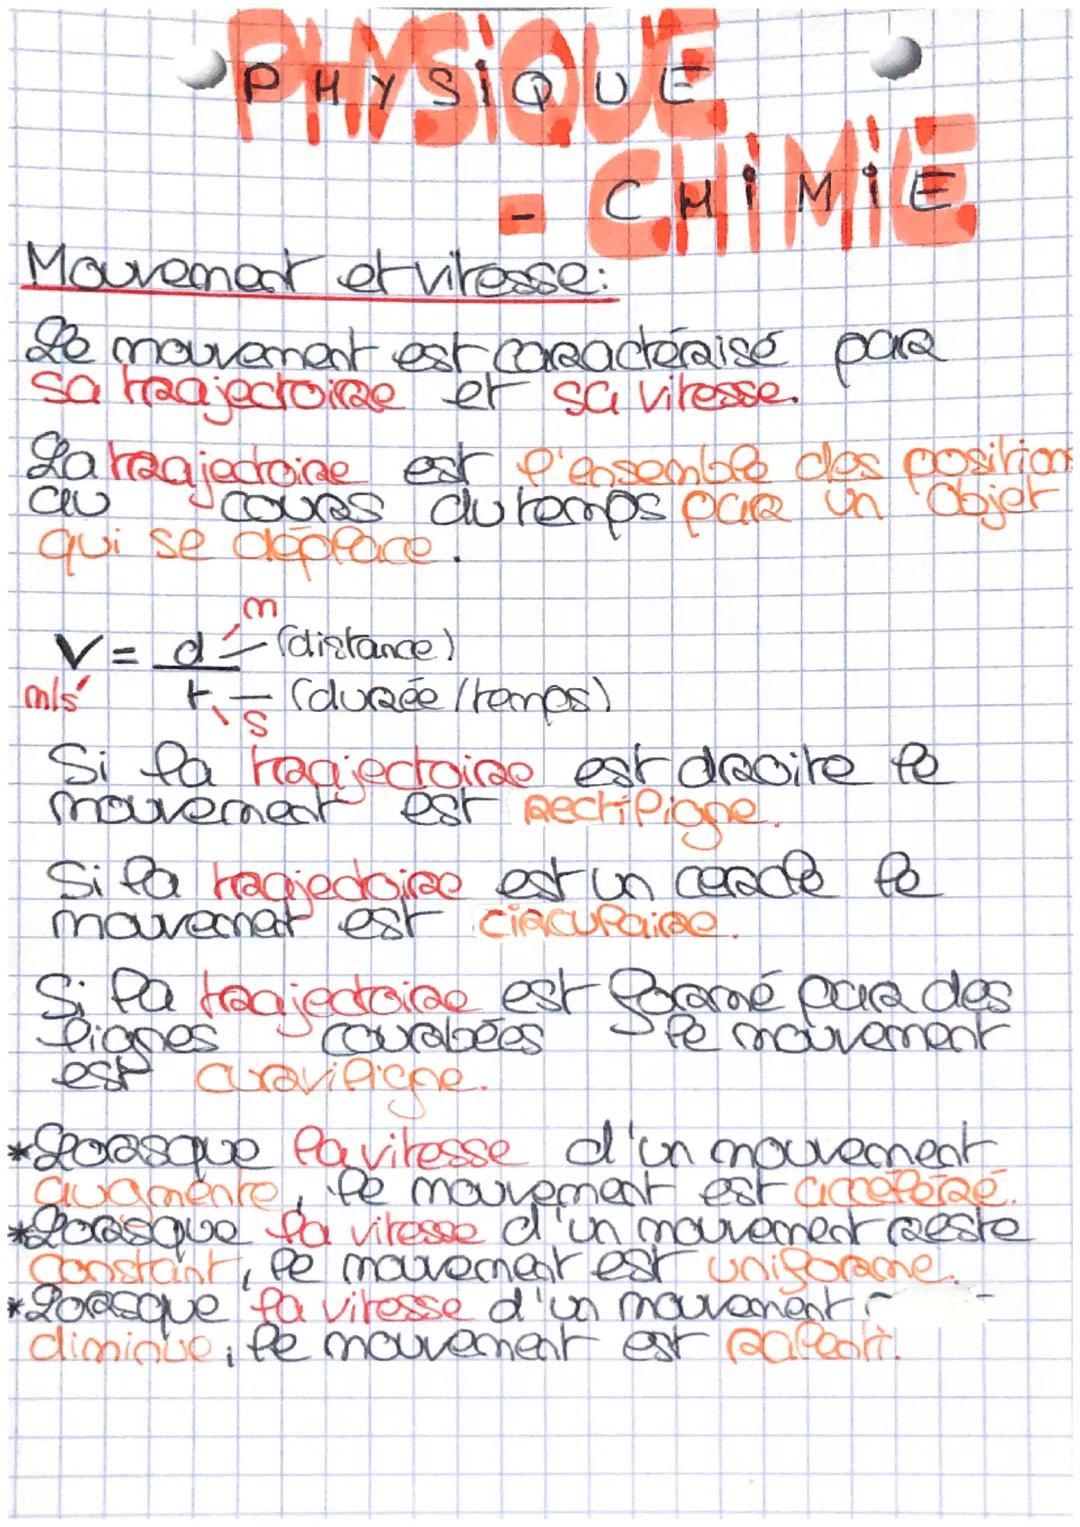 PHYSIQUE
- CHIMIE
Mouvement et vitesse:
Le mouvement est caractérisé par
sa trajectoire et sa vitesse.
La trajectoire est l'ensemble des positions
au cours du temps par un objet
qui se déplace.
m
V = d — (distance)
m/s t — (durée/temps)
s
Si la trajectoire est droite le
mouvement est rectiligne.
Si la trajectoire est un cercle le
mouvement est circulaire.
Si la trajectoire est formé par des
lignes courbées le mouvement
est curviligne.
*Lorsque la vitesse d'un mouvement
augmente, le mouvement est accéléré.
*Lorsque la vitesse d'un mouvement reste
constant, le mouvement est uniforme.
*Lorsque la vitesse d'un mouvement
diminue, le mouvement est ralenti.